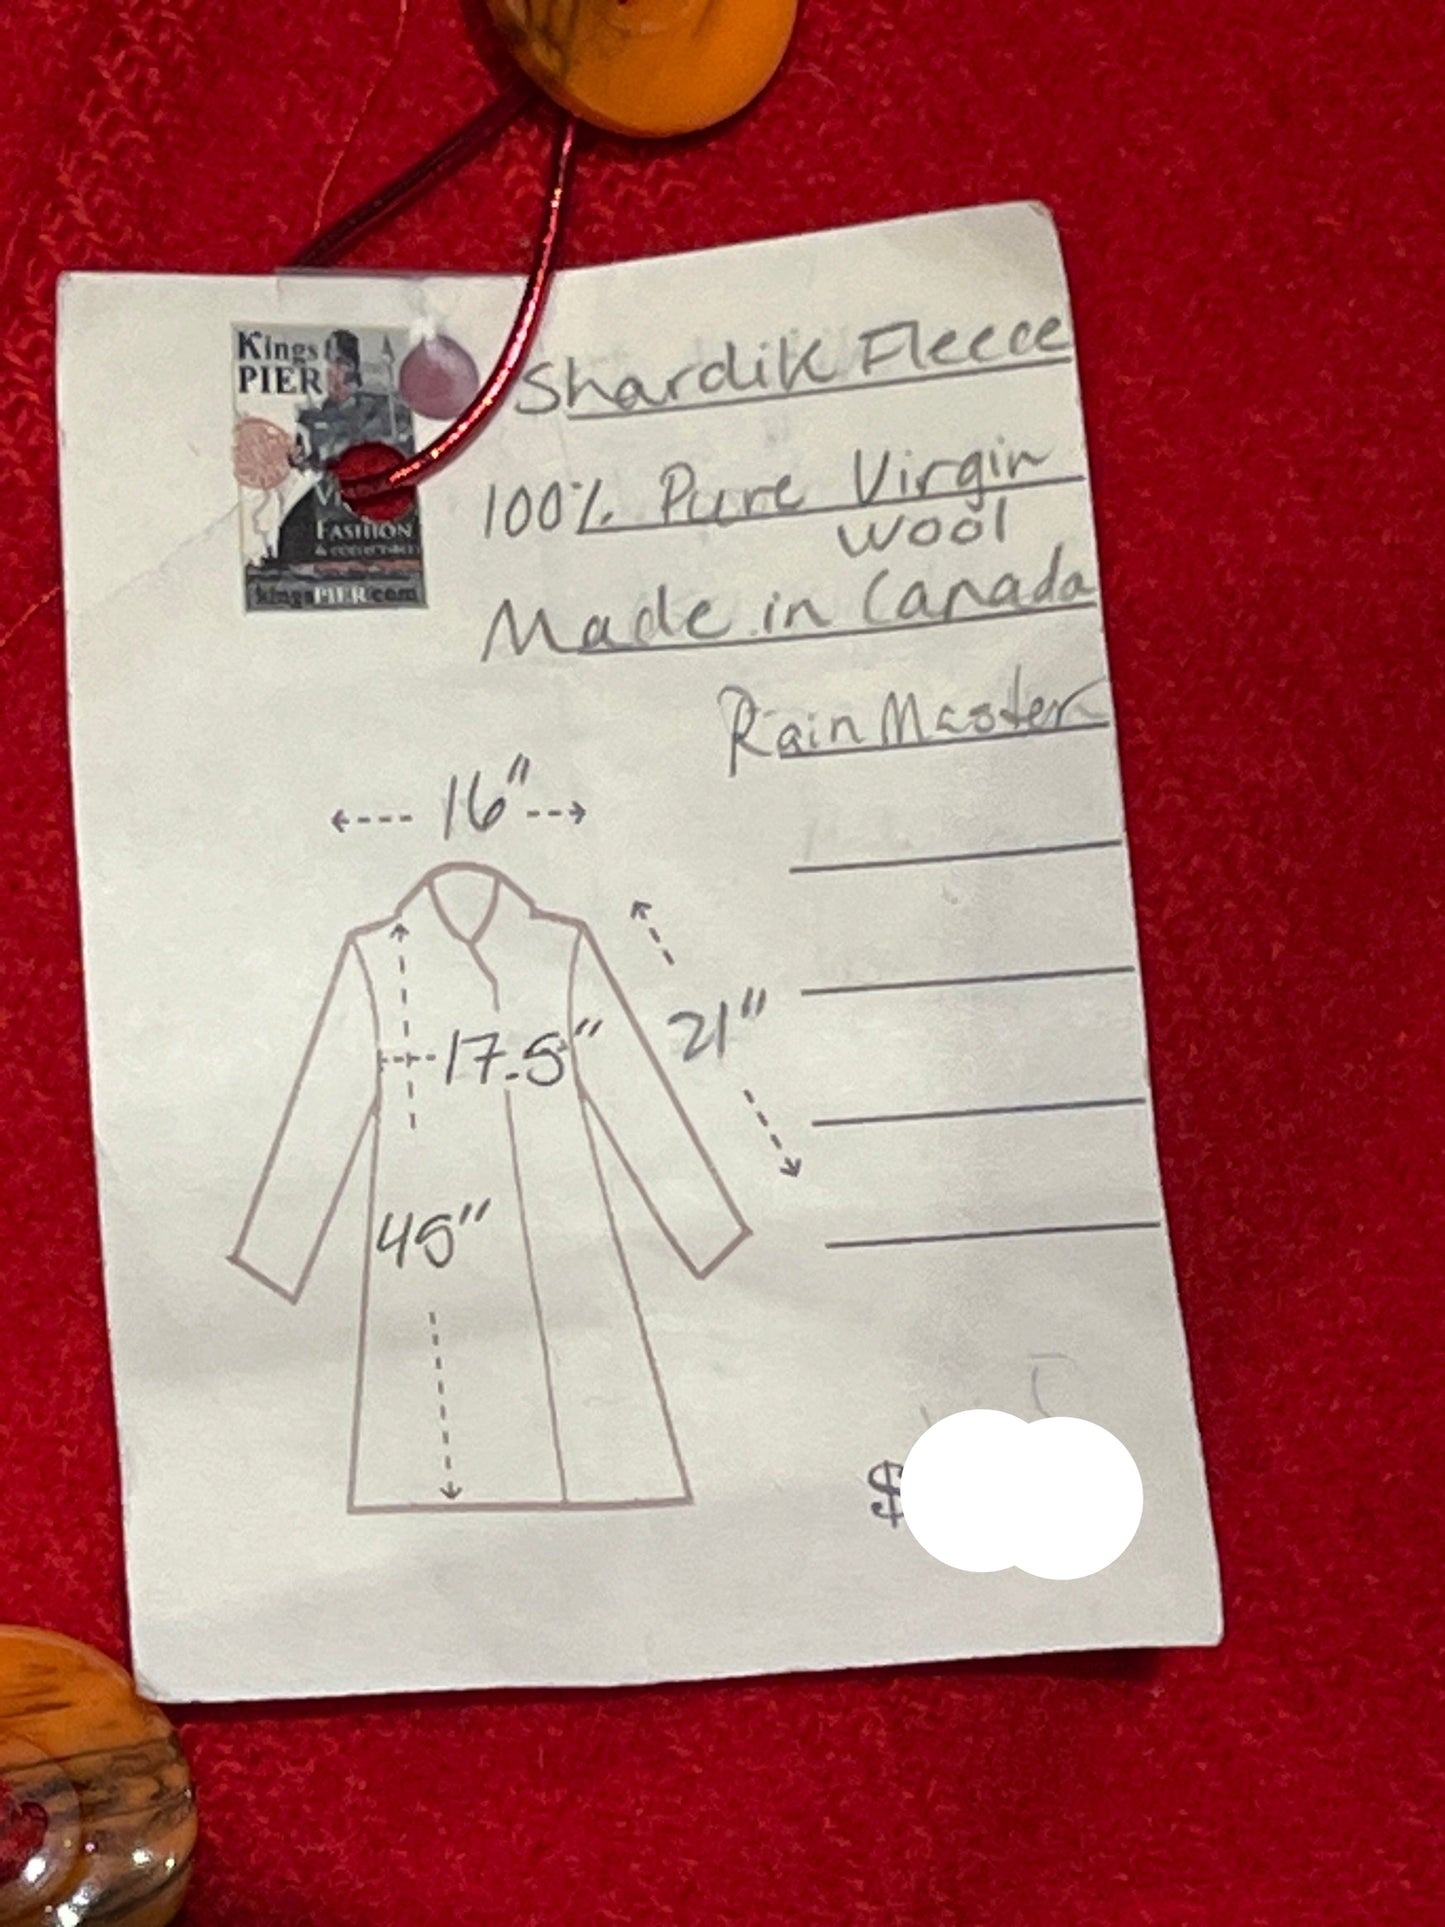 Kings
PIER
FASHION
kingsPIER.com
Shardik Fleece
100% Pure Virgin
Wool
Made in Canada
RainMaster
16"
17.5"
21"
45"
$